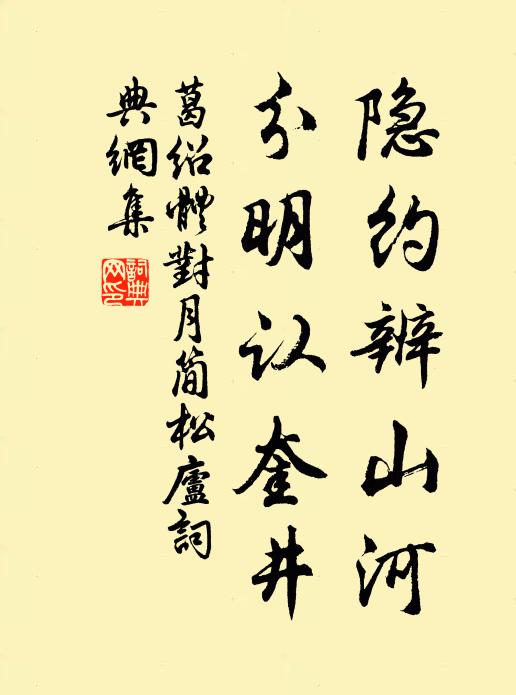 隐约辨山河
分明认奎井
葛绍體對月简松廬詞
典網集
詞典
网印